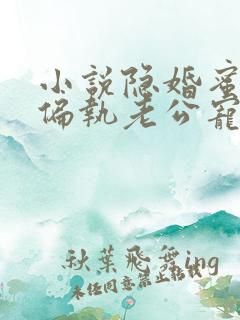 小说隐婚蜜
偏执老公宠
秋葉飛舞ing
未经同意禁止转载